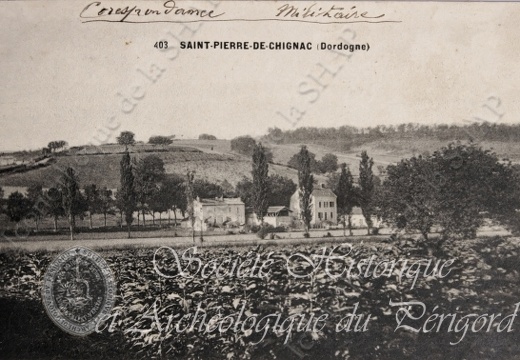 Corespondance Militaire
403 SAINT-PIERRE-DE-CHIGNAC (Dordogne)
Société Historique
et Archéologique du Périgord